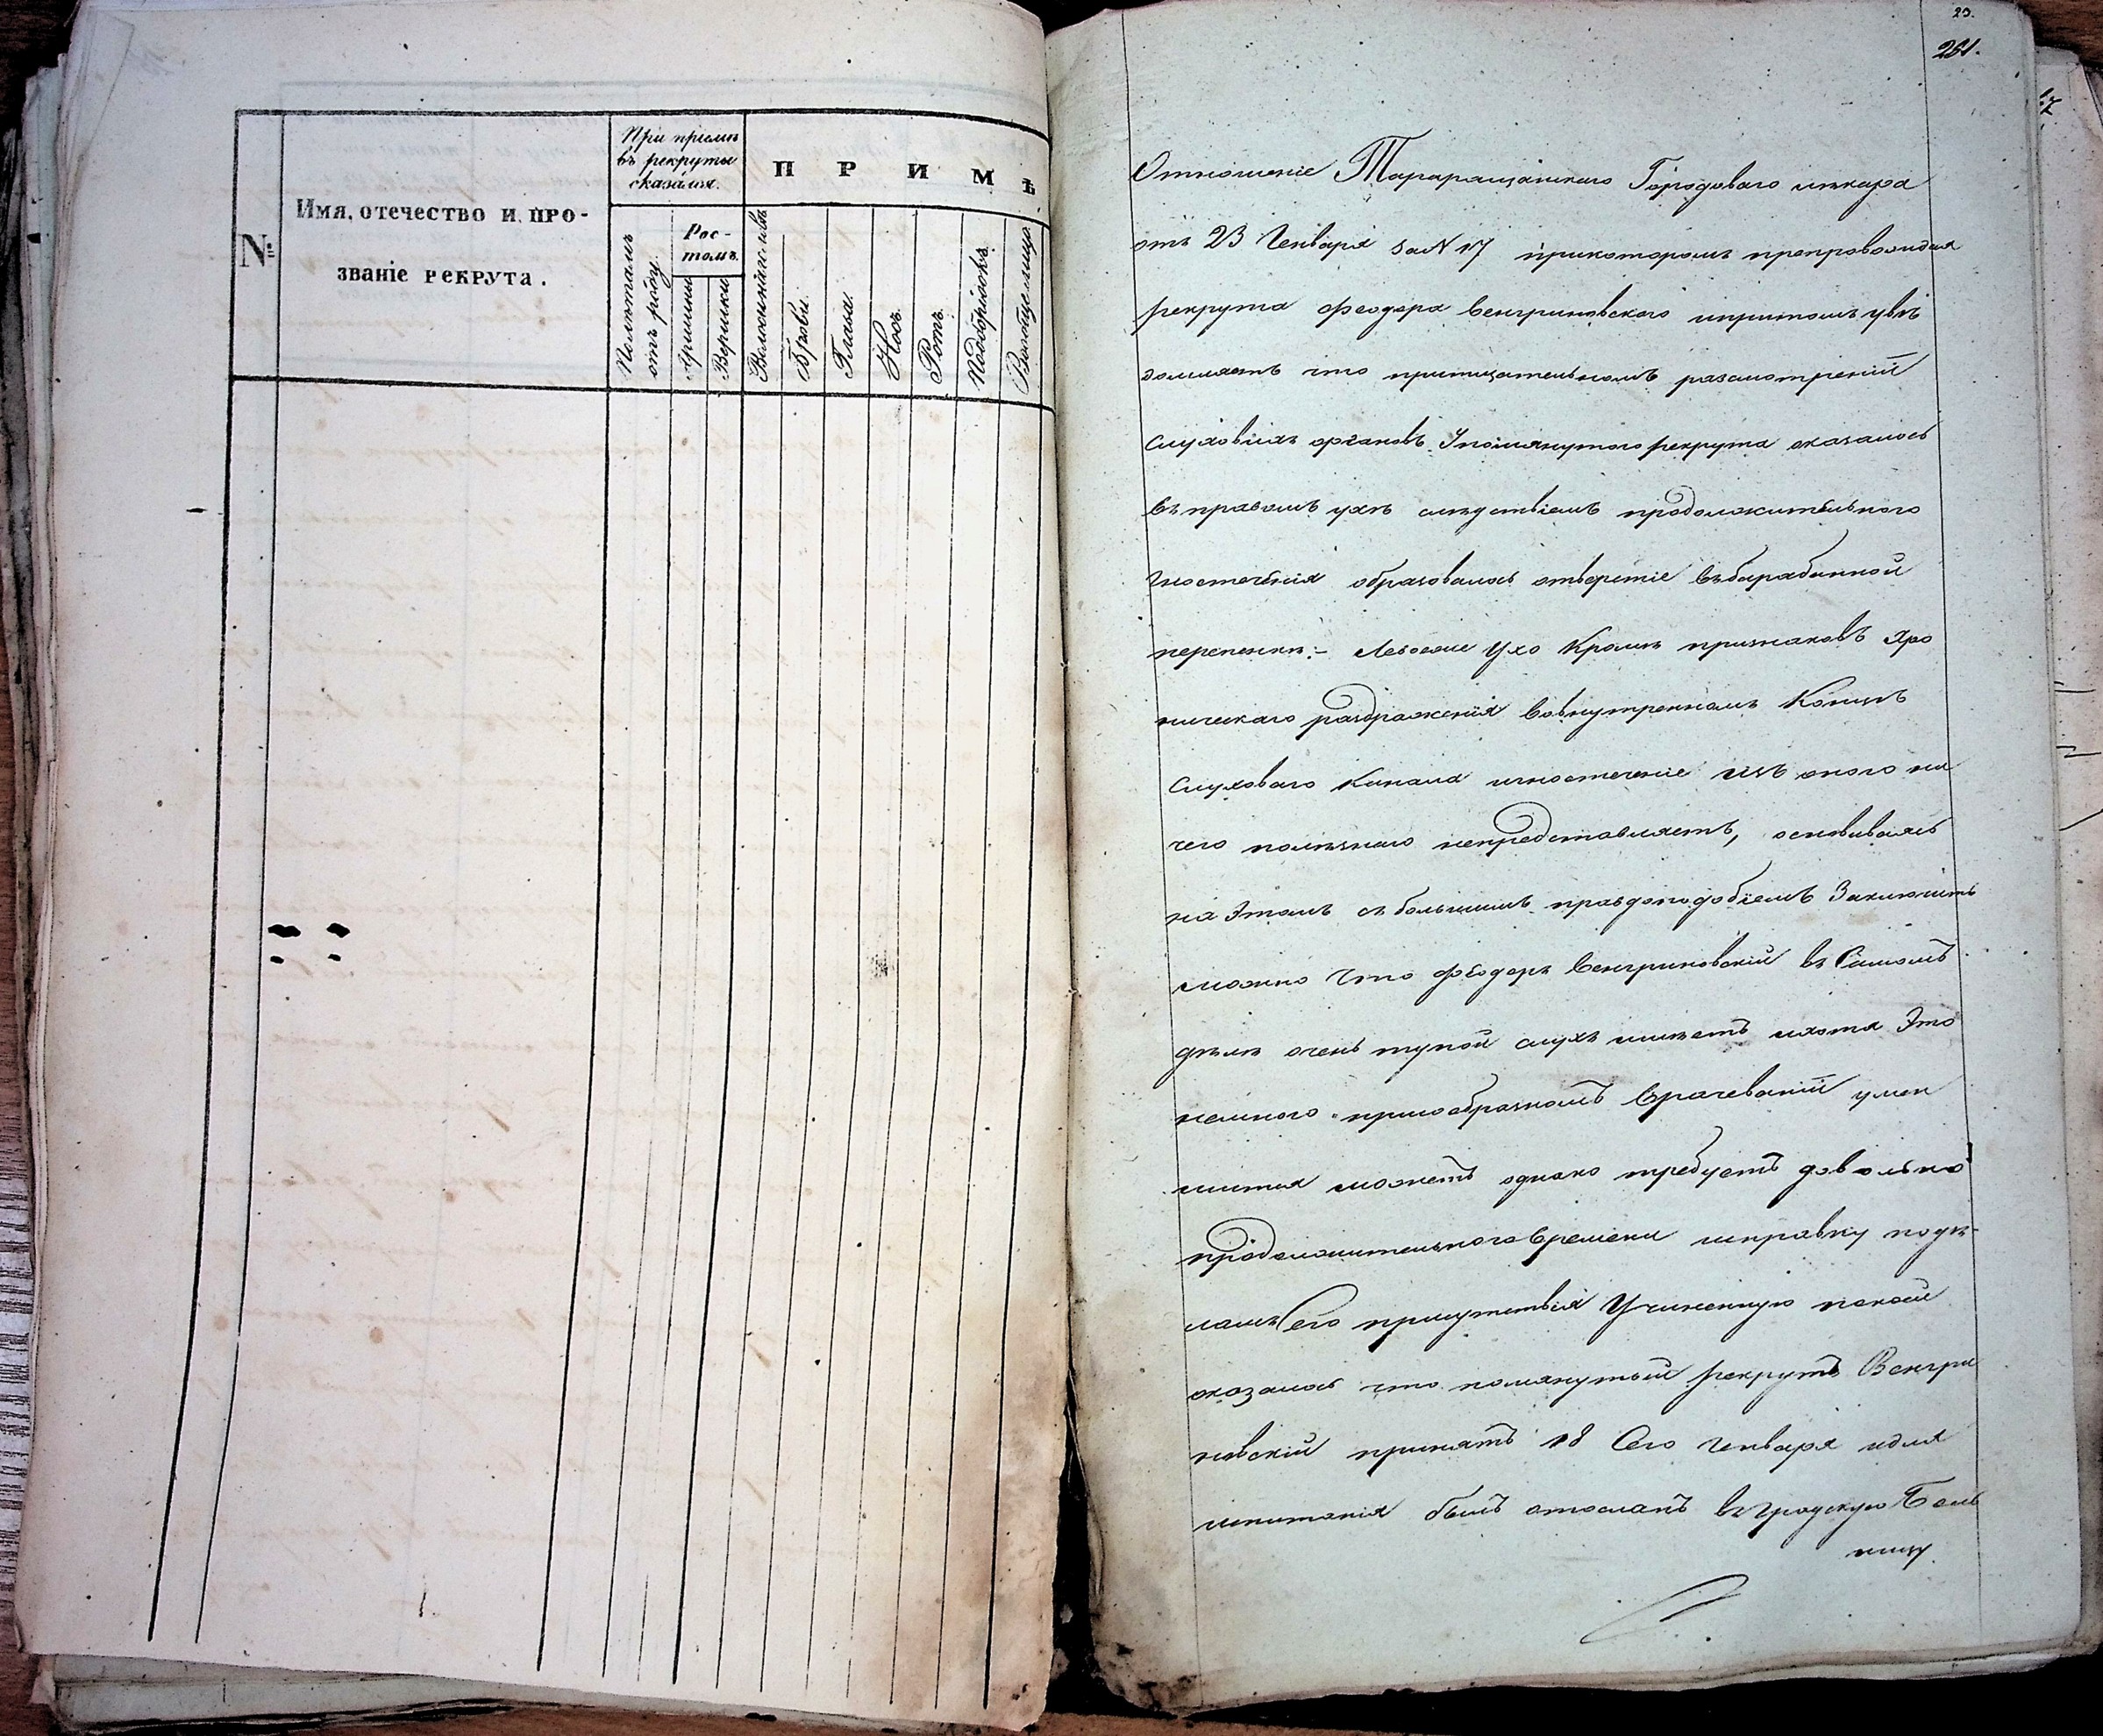 №
Имя, отечество и про-
званіе рекрута.
При пріемѣ
въ рекруты
сказался.
Полѣтамъ
отъ роду.
Рос-
томъ.
Аршины
Вершки
П Р И М Ѣ
Волосы на головѣ
Брови.
Глаза.
Носъ.
Ротъ.
Подбородокъ.
Вообще лицо.
23.
281.
Отношеніе Таращанскаго Городоваго лѣкаря
отъ 23 Генваря за N 17 прикоторомъ препровождая
рекрута Феодора Венгриновскаго ипритомъ увѣ
домляетъ что притщательномъ разсмотреніи
слуховыхъ органовъ Упомянутого рекрута оказалось
въ правомъ ухѣ слѣдствіемъ продолжительного
гноетеченія образовалось отверстіе въбарабанной
перепонкѣ:- Левоеже Ухо Кромѣ признаковъ хро
ническаго раздраженія вовнутренномъ Концѣ
слуховаго канала игноетеченіе изъ оного ни
чего полѣзнаго непредставляетъ, основываясь
на Этомъ съ большимъ правдоподобіемъ Заключить
можно что Феодоръ Венгриновскій въ Самомъ
дѣлѣ очень тупой слухъ имѣетъ ихотя Это
немного присообразномъ врачеваніи умен
шится можетъ однако требуетъ довольно
продолжительного времени исправку подѣ-
ламъ Сего присутствія Учиненную покоей
оказалось что помянутый рекрутъ Венгри
новскій принятъ 18 Сего Генваря идля
испитанія былъ отосланъ въ Градскую Боль
ницу.